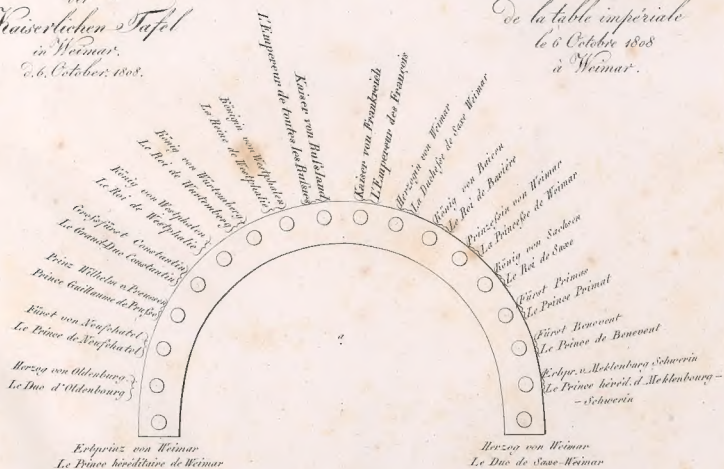 der
Kaiserlichen Tafel
in Weimar.
d. 6. October. 1808.
de la table impériale
le 6 Octobre 1808
à Weimar.
Erbprinz von Weimar
Le Prince héréditaire de Weimar
Herzog von Oldenburg
Le Duc d'Oldenbourg
Fürst von Neufchatel
Le Prince de Neufchatel
Prinz Wilhelm v. Preussen
Prince Guillaume de Prusse
Grosfürst Constantin
Le Grand Duc Constantin
König von Westphalen
Le Roi de Westphalie
König von Würtemberg
Le Roi de Wurtemberg
Königin von Westphalen
La Reine de Westphalie
Kaiser von Russland
L'Empereur de toutes les Russies
Kaiser von Frankreich
L'Empereur des Français
Herzogin von Weimar
La Duchesse de Saxe Weimar
König von Baiern
Le Roi de Bavière
Prinzessin von Weimar
La Princesse de Weimar
König von Sachsen
Le Roi de Saxe
Fürst Primas
Le Prince Primat
Fürst Benevent
Le Prince de Benevent
Erbpr. v. Meklenburg Schwerin
Le Prince héréd. d. Meklenbourg –
– Schwerin
Herzog von Weimar
Le Duc de Saxe-Weimar
a